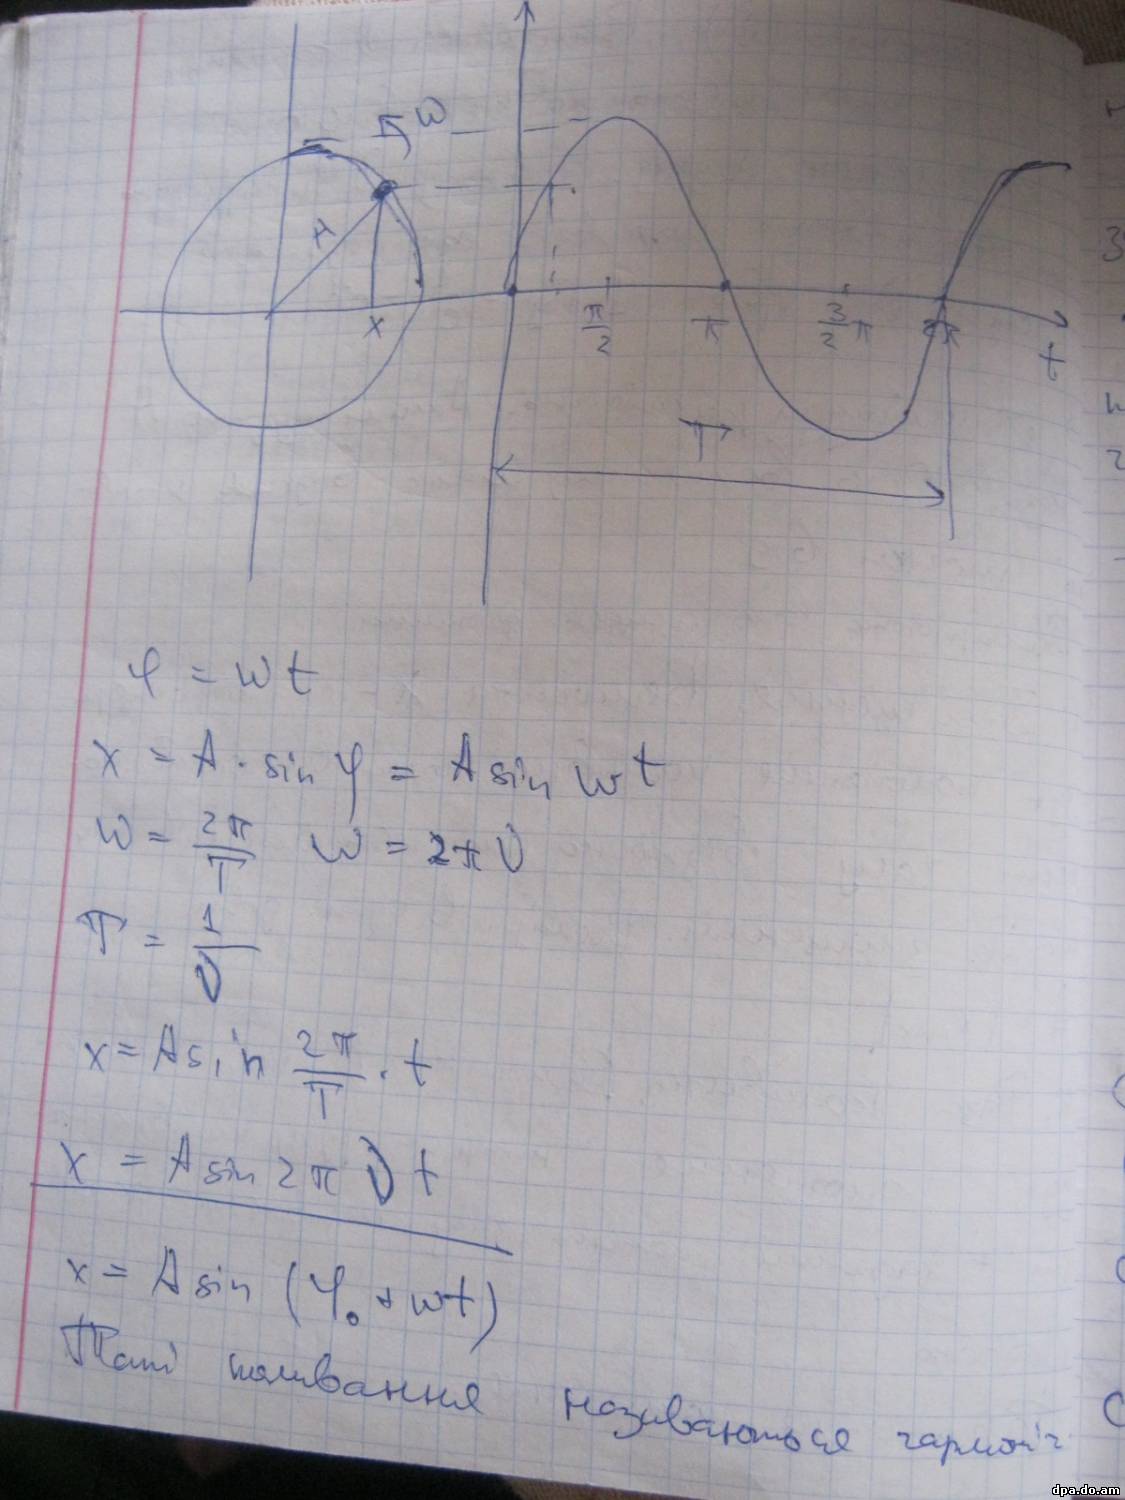 ω
A
x
π/2 π 3/2 π 2π
t
T
φ = ωt
x = A · sin φ = A sin ωt
ω = 2π/T ω = 2πν
T = 1/ν
x = A sin 2π/T · t
x = A sin 2πνt
x = A sin (φ₀ + ωt)
Такі коливання називаються гармоніч
dpa.do.am